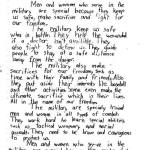 Men and women who serve in the
military are special because they keep
us safe, make sacrifices and fight for
our freedom.
The military keep us safe
who in battle. They help the wounded
if a doctor isn't available. They
also fight to defend us. They guide
people to stay at a safe distance
away from the danger.
The military also make
sacrifices for our freedom such as
time with their family and friends. Also
they put aside their interests, sports
and other activities. Some even make the
ultimate sacrifice which is their lives.
All in the name of our freedom.
The military are specially trained
men and women in all types of combat.
They work hard to have special skills
such as tactical weaponry and special
grounds. They need to be brave and courageous
to protect us.
Men and women who serve in the